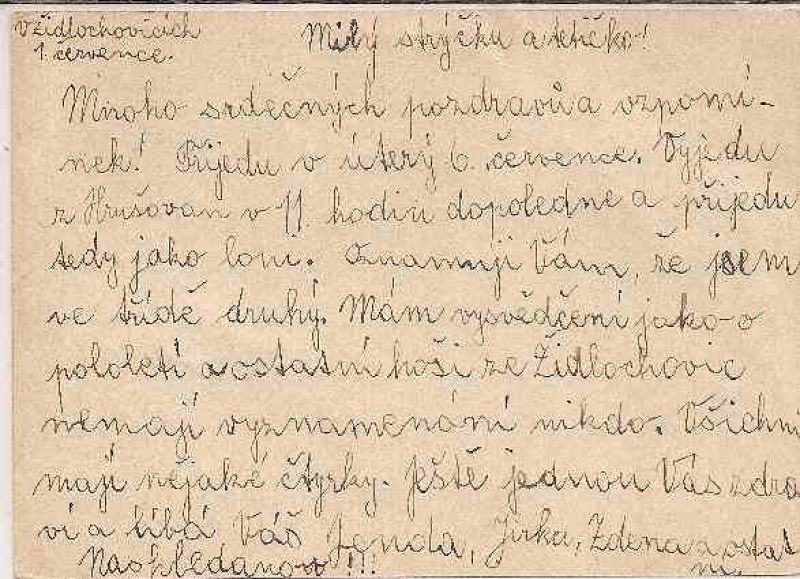 V Židlochovicích
1. července.
Milý strýčku a tetičko!
Mnoho srdečných pozdravů a vzpomí-
nek! Přijedu v úterý 6. července. Vyjedu
z Hrušovan v 11. hodin dopoledne a přijedu
tedy jako loni. Oznamuji Vám, že jsem
ve třídě druhý. Mám vysvědčení jako o
pololetí a ostatní hoši ze Židlochovic
nemají vyznamenání nikdo. Všichni
mají nějaké čtyrky. Ještě jednou Vás zdra
ví a líbá Váš Jenda, Jirka, Zdena a ostat
ní
Naskledanou!!!